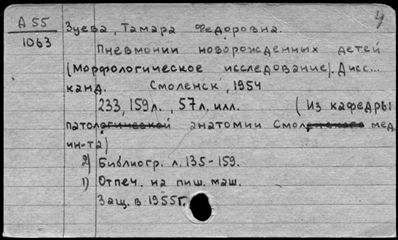 А 55
1063
Зуева, Тамара Федоровна.
Пневмонии новорожденных детей
(Морфологическое исследование). Дисс...
канд. Смоленск, 1954
233, 159л., 57л. илл. (Из кафедры
патологической анатомии Смоленского мед.
ин-та)
2) Библиогр. л. 135-159.
1) Отпеч. на пиш. маш.
Защ. в 1955г.